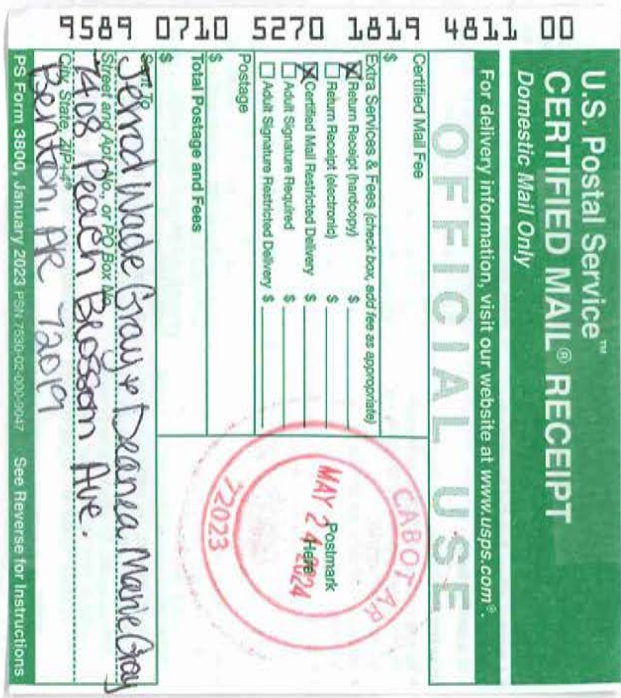 9589 0710 5270 1819 4811 00
U.S. Postal Service™
CERTIFIED MAIL® RECEIPT
Domestic Mail Only
For delivery information, visit our website at www.usps.com®.
OFFICIAL USE
Certified Mail Fee
$
Extra Services & Fees (check box, add fee as appropriate)
Return Receipt (hardcopy) $
Return Receipt (electronic) $
Certified Mail Restricted Delivery $
Adult Signature Required $
Adult Signature Restricted Delivery $
Postage
$
Total Postage and Fees
$
Postmark
Here
CABOT AR
MAY 24 2024
72023
Sent To
Jerrod Wade Gray & Deanea Marie Gray
Street and Apt. No., or PO Box No.
1408 Peach Blossom Ave.
City, State, ZIP+4®
Benton, AR 72019
PS Form 3800, January 2023 PSN 7530-02-000-9047 See Reverse for Instructions